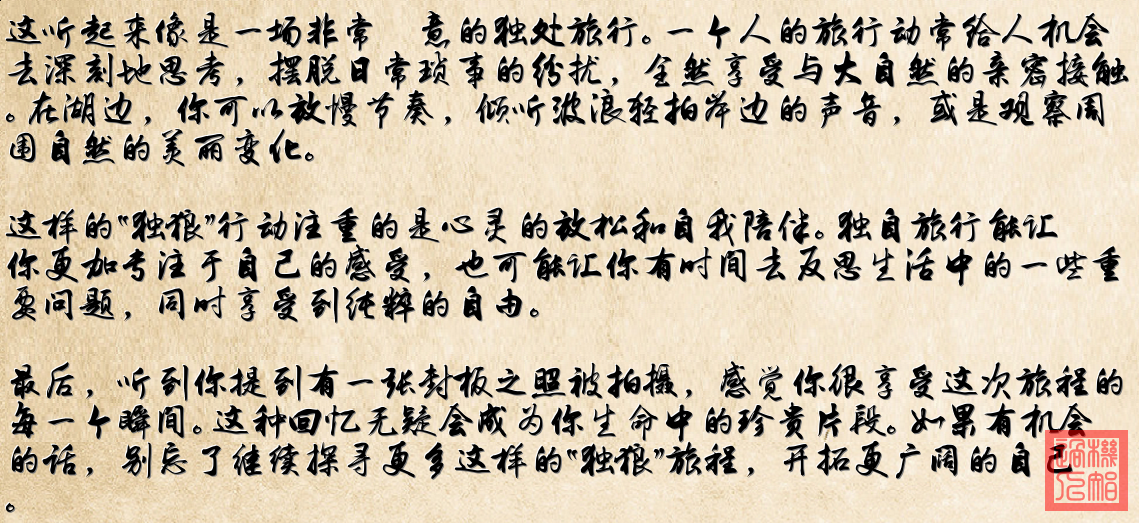 这听起来像是一场非常 意的独处旅行。一个人的旅行动常给人机会
去深刻地思考，摆脱日常琐事的纷扰，全然享受与大自然的亲密接触
。在湖边，你可以放慢节奏，倾听波浪轻拍岸边的声音，或是观察周
围自然的美丽变化。
这样的“独狼”行动注重的是心灵的放松和自我陪伴。独自旅行能让
你更加专注于自己的感受，也可能让你有时间去反思生活中的一些重
要问题，同时享受到纯粹的自由。
最后，听到你提到有一张封板之照被拍摄，感觉你很享受这次旅程的
每一个瞬间。这种回忆无疑会成为你生命中的珍贵片段。如果有机会
的话，别忘了继续探寻更多这样的“独狼”旅程，开拓更广阔的自己
。